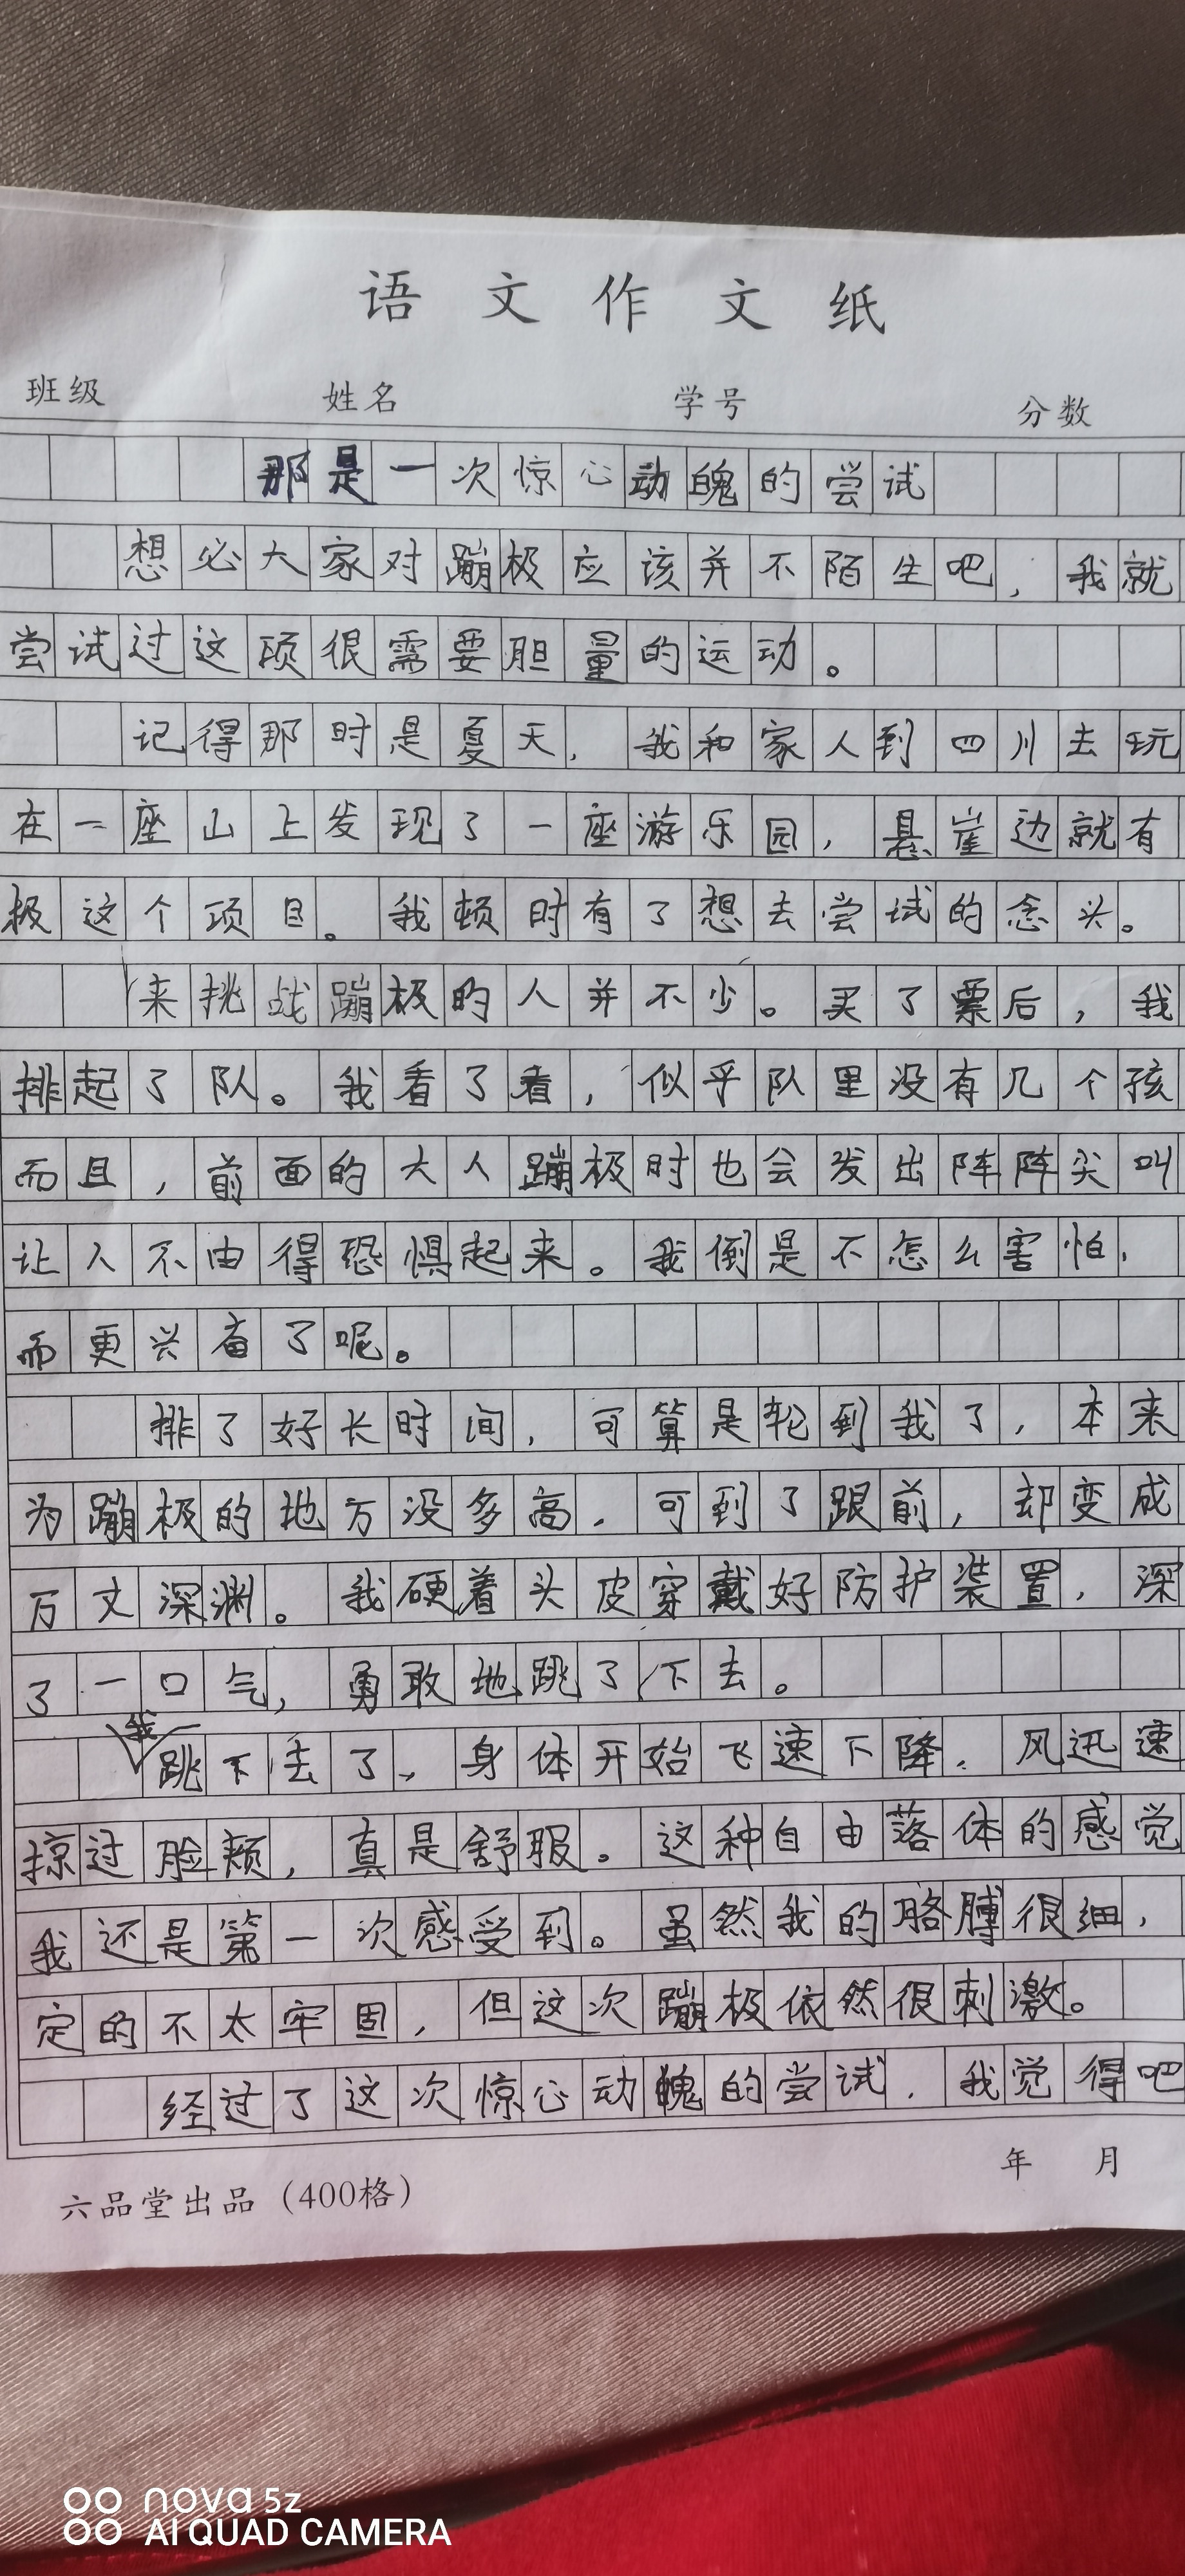 语文作文纸
班级 姓名 学号 分数
那是一次惊心动魄的尝试
想必大家对蹦极应该并不陌生吧，我就
尝试过这项很需要胆量的运动。
记得那时是夏天，我和家人到四川去玩
在一座山上发现了一座游乐园，悬崖边就有
极这个项目。我顿时有了想去尝试的念头。
来挑战蹦极的人并不少。买了票后，我
排起了队。我看了看，似乎队里没有几个孩
而且，前面的大人蹦极时也会发出阵阵尖叫
让人不由得恐惧起来。我倒是不怎么害怕，
而更兴奋了呢。
排了好长时间，可算是轮到我了，本来
为蹦极的地方没多高，可到了跟前，却变成
万丈深渊。我硬着头皮穿戴好防护装置，深
了一口气，勇敢地跳了下去。
我跳下去了，身体开始飞速下降，风迅速
掠过脸颊，真是舒服。这种自由落体的感觉
我还是第一次感受到。虽然我的胳膊很细，
定的不太牢固，但这次蹦极依然很刺激。
经过了这次惊心动魄的尝试，我觉得吧
六品堂出品（400格） 年 月
nova 5z
AI QUAD CAMERA